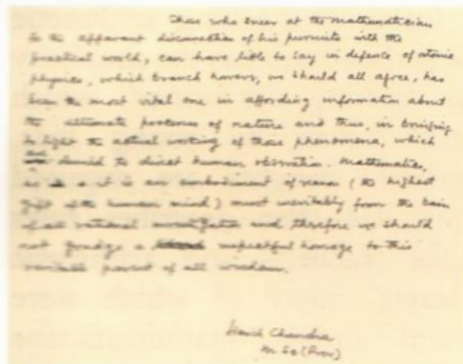 Those who sneer at the mathematician
to the apparent disconnection of his pursuits with the
practical world, can have little to say in defence of atomic
physics, which branch however, we should all agree, has
been the most vital one in affording information about
the ultimate processes of nature and thus, in bringing
to light the actual working of those phenomena, which
denied to direct human observation. Mathematics,
as it is an embodiment of reason (the highest
gift of the human mind) must inevitably form the basis
of all rational investigation and therefore we should
not grudge a respectful homage to this
veritable parent of all wisdom.
Harish Chandra
M.Sc (Prev)